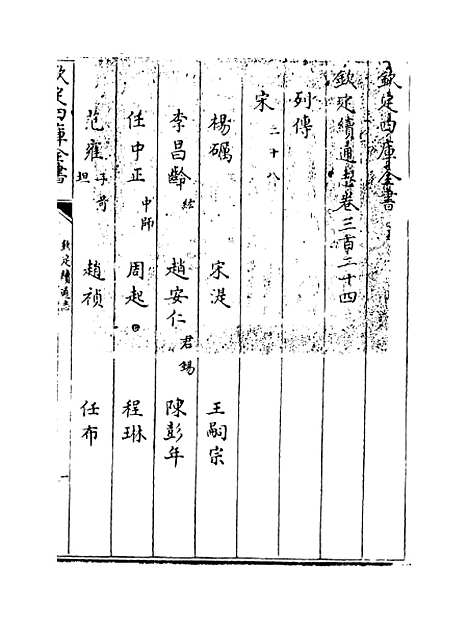 欽定四庫全書
欽定續通志卷三百二十四
列傳
宋 二十八
楊礪 宋湜 王嗣宗
李昌齡 紘 趙安仁 君錫 陳彭年
任中正 中師 周起 程琳
范雍 子奇 坦 趙稹 任布
欽定四庫全書
欽定續通志
一